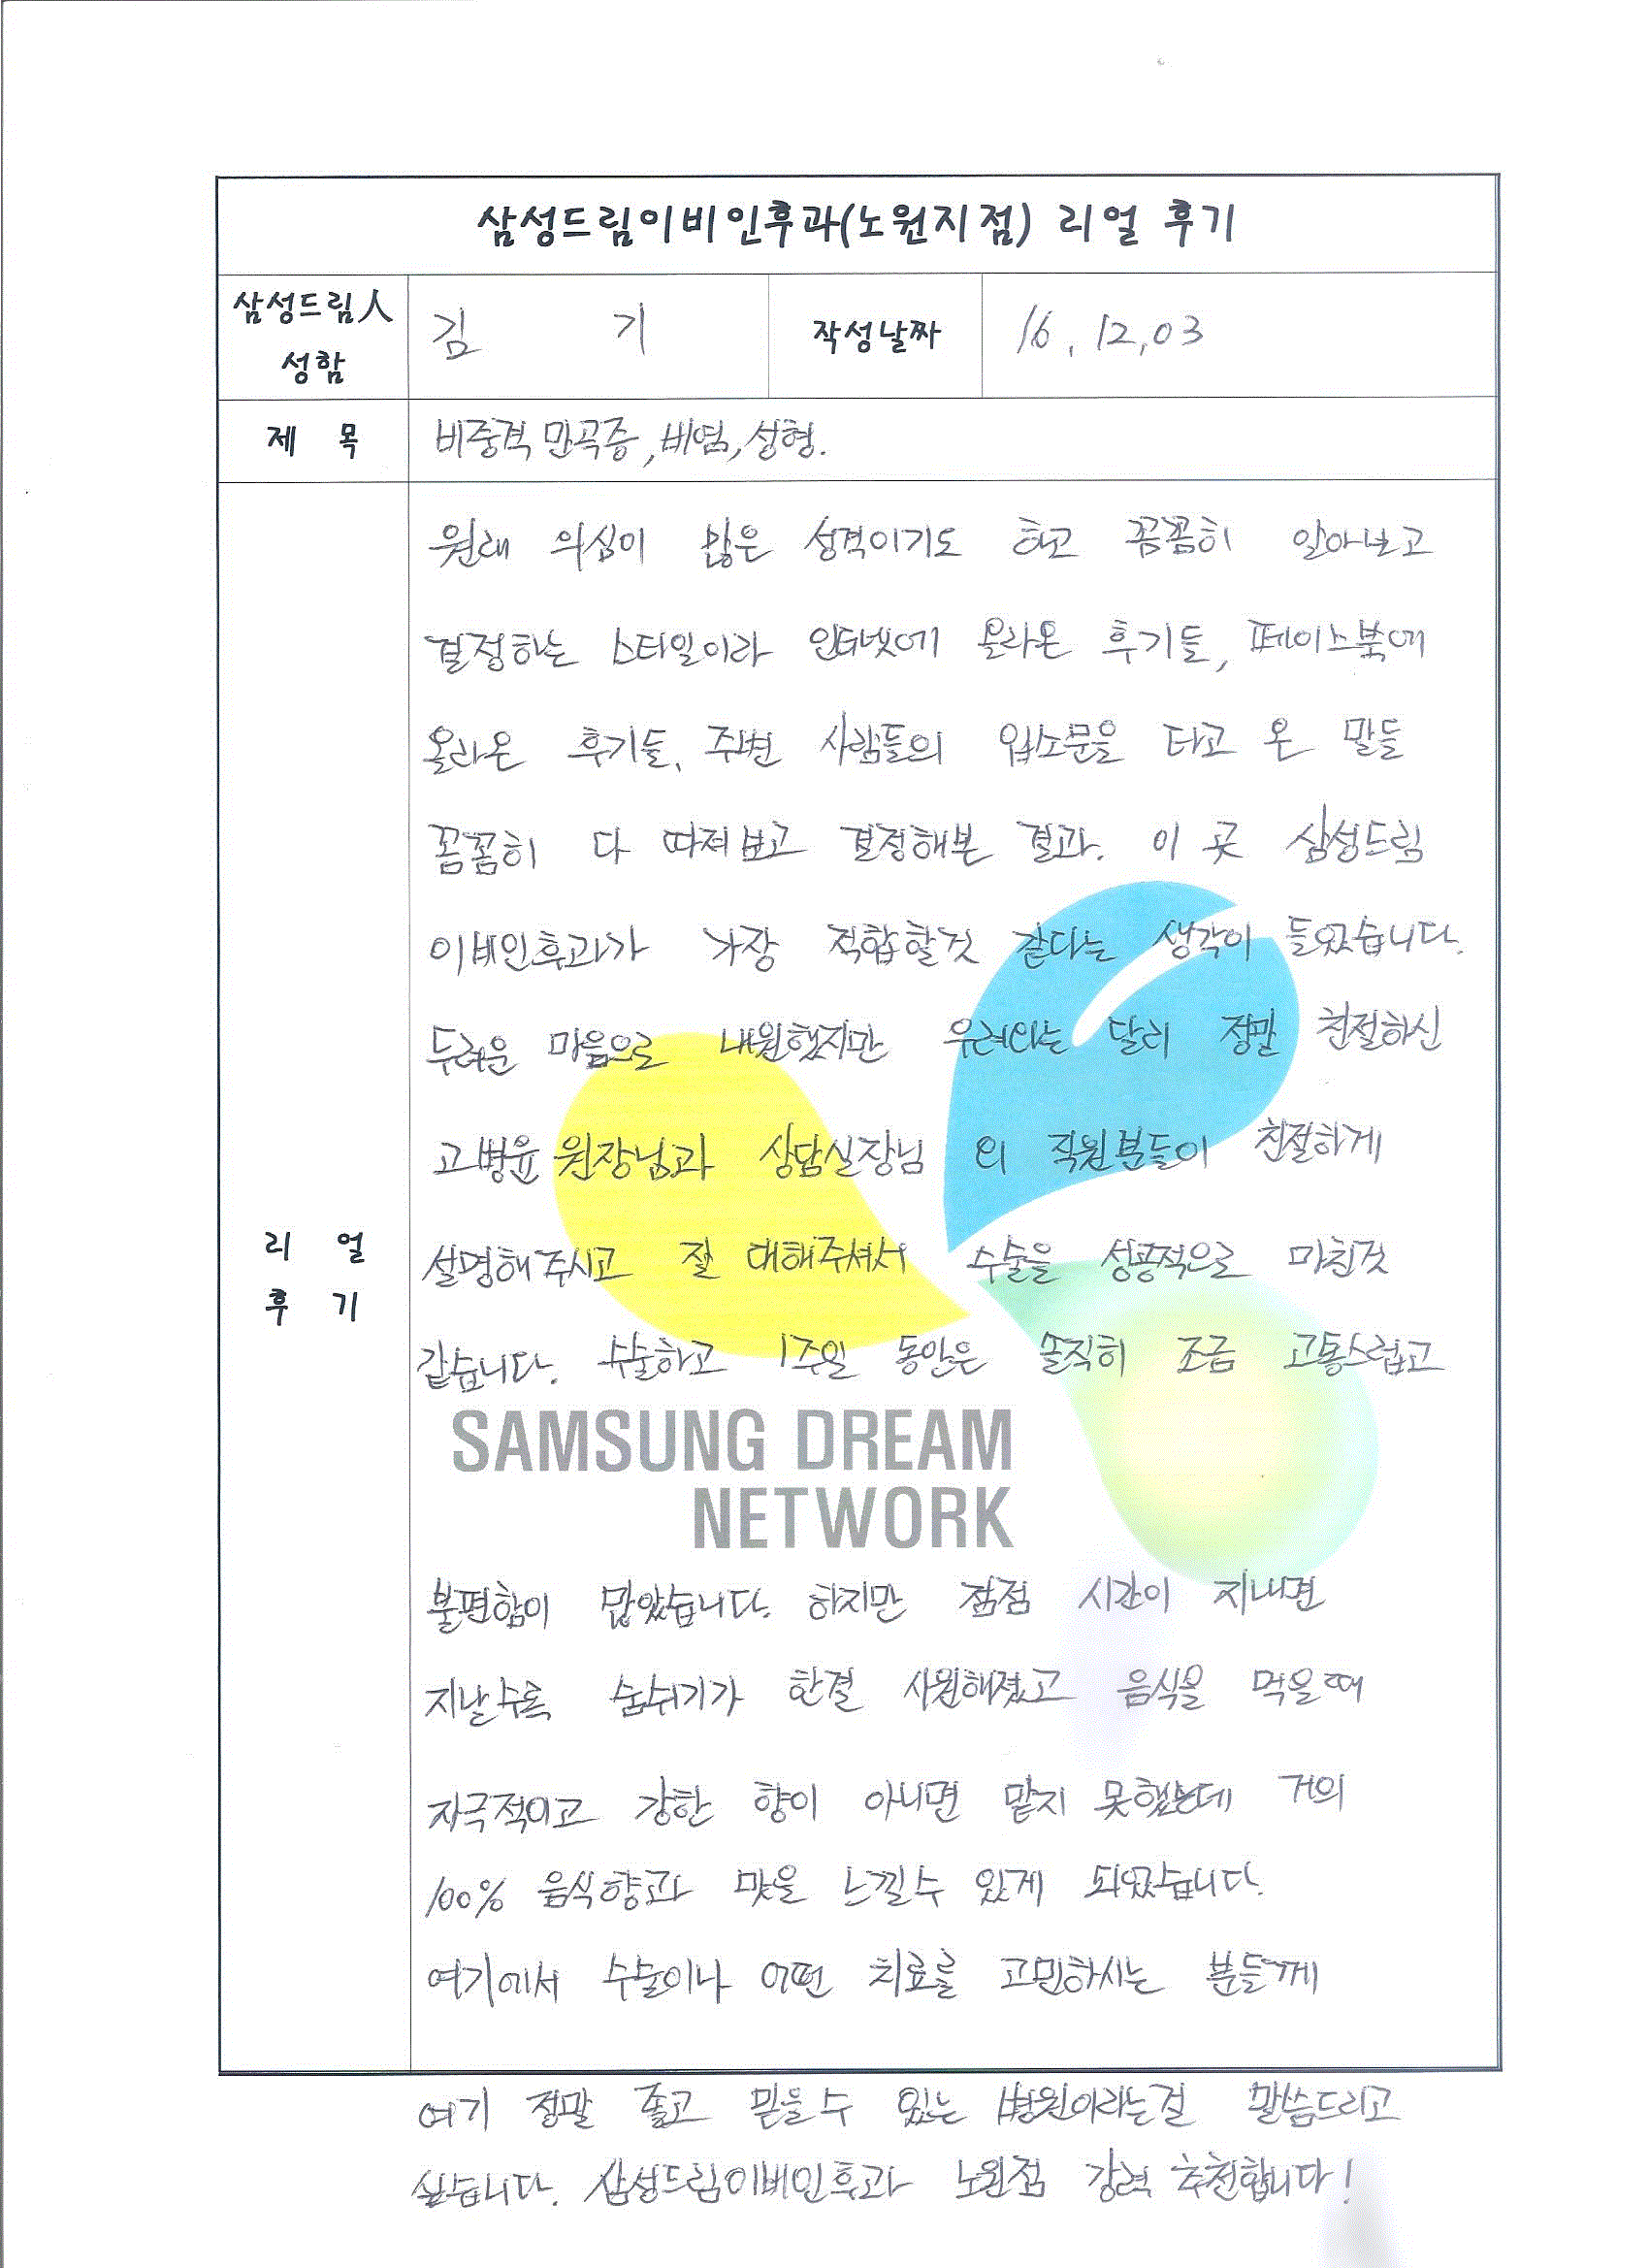 삼성드림이비인후과(노원지점) 리얼 후기
삼성드림人
성함
김 기
작성날짜
16. 12, 03
제 목
비중격 만곡증, 비염, 성형.
리 얼
후 기
원래 의심이 많은 성격이기도 하고 꼼꼼히 알아보고
결정하는 스타일이라 인터넷에 올라온 후기들, 페이스북에
올라온 후기들, 주변 사람들의 입소문을 타고 온 말들
꼼꼼히 다 따져보고 결정해본 결과. 이 곳 삼성드림
이비인후과가 가장 적합할것 같다는 생각이 들었습니다.
두려운 마음으로 내원했지만 우려와는 달리 정말 친절하신
고병윤 원장님과 상담실장님 외 직원분들이 친절하게
설명해주시고 잘 대해주셔서 수술을 성공적으로 마친것
같습니다. 수술하고 1주일 동안은 솔직히 조금 고통스럽고
SAMSUNG DREAM
NETWORK
불편함이 많았습니다. 하지만 점점 시간이 지나면
지날수록 숨쉬기가 한결 시원해졌고 음식을 먹을때
자극적이고 강한 향이 아니면 맡지 못했는데 거의
100% 음식향과 맛을 느낄수 있게 되었습니다.
여기에서 수술이나 어떤 치료를 고민하시는 분들께
여기 정말 좋고 믿을수 있는 병원이라는걸 말씀드리고
싶습니다. 삼성드림이비인후과 노원점 강력 추천합니다!